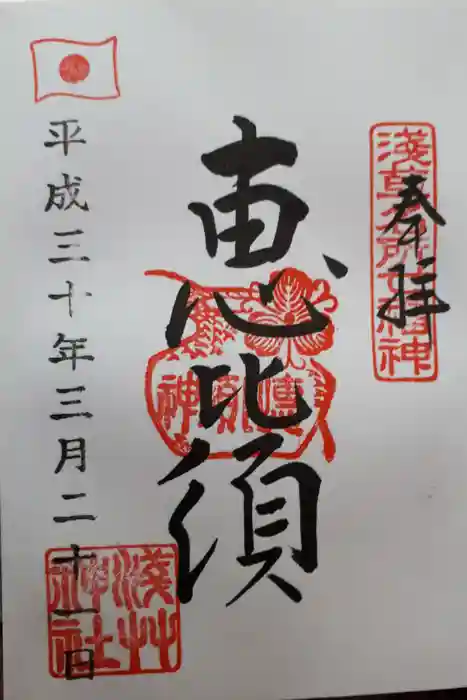 奉拝
淺草名所七福神
恵比須
平成三十年三月二十一日
淺艸神社